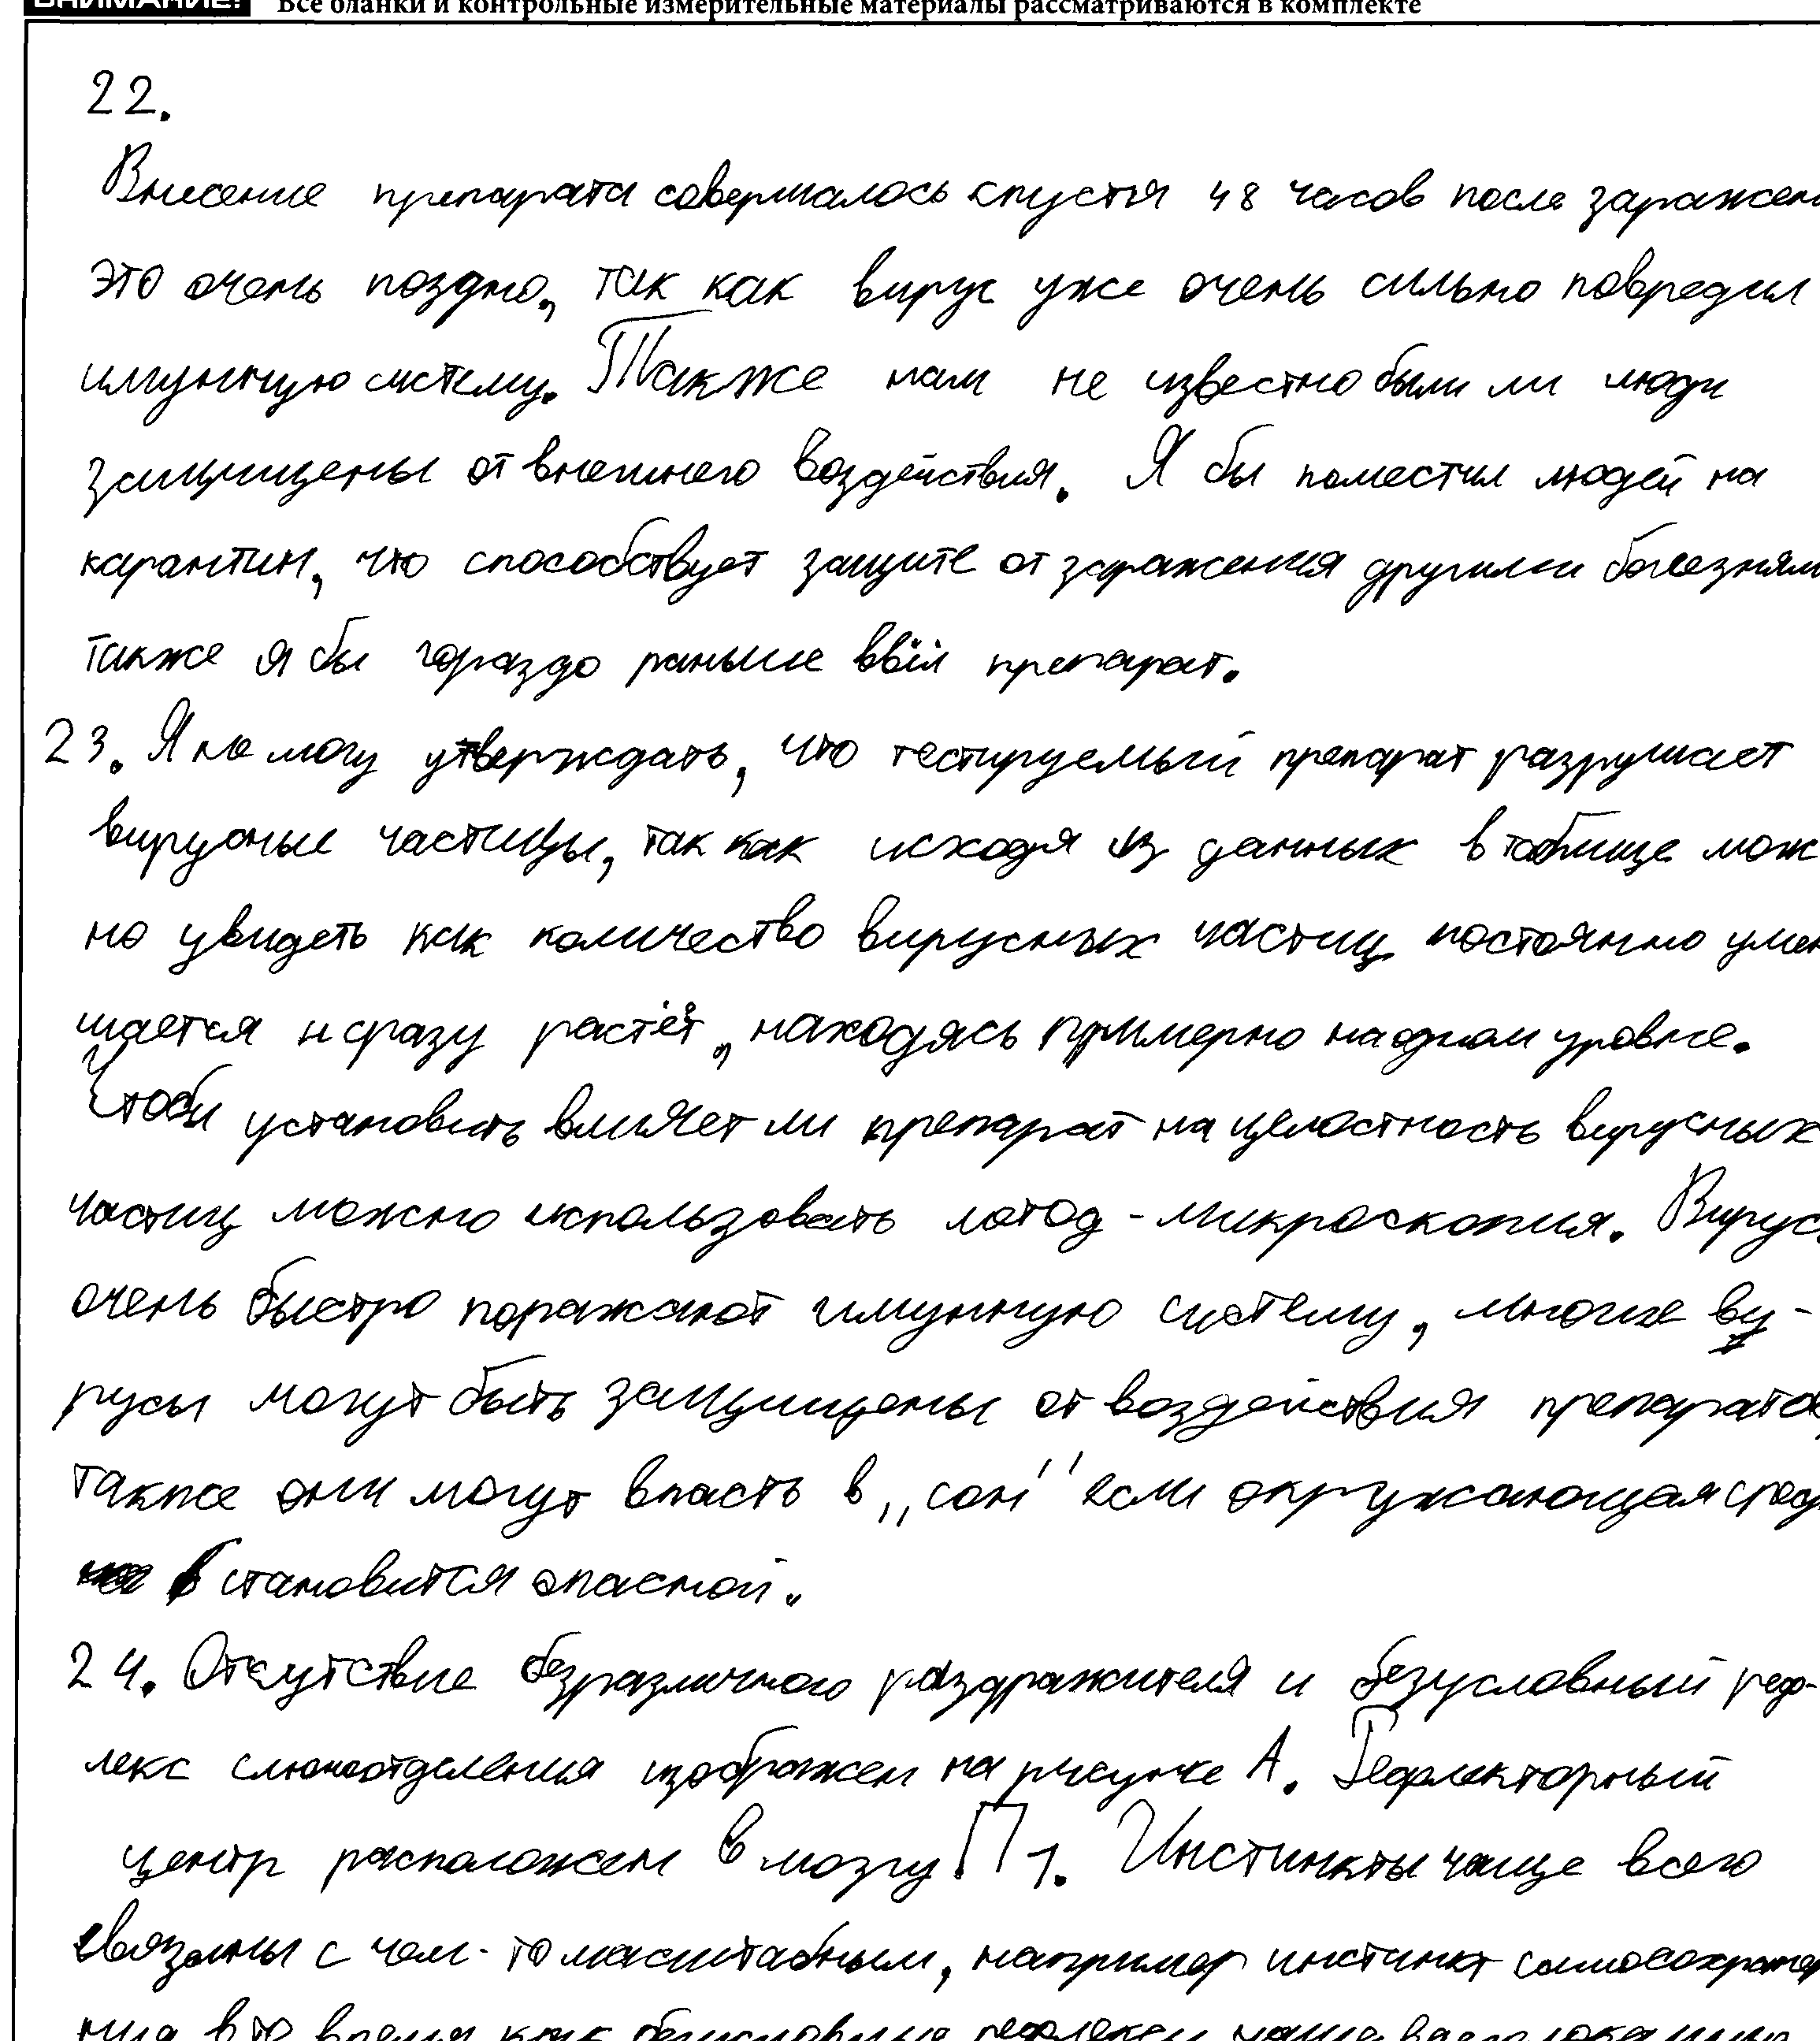 ВНИМАНИЕ! Все бланки и контрольные измерительные материалы рассматриваются в комплекте
22.
Внесение препарата совершалось спустя 48 часов после заражен
это очень поздно, так как вирус уже очень сильно повредил
имунную систему. Также нам не известно были ли люди
защищены от внешнего воздействия. Я бы поместил людей на
карантин, что способствует защите от заражения другими болезням
также я бы гораздо раньше ввёл препарат.
23. Я не могу утверждать, что тестируемый препарат разрушает
вирусные частицы, так как исходя из данных в таблице мож
но увидеть как количество вирусных частиц постоянно умен
шается и сразу растёт, находясь примерно на одном уровне.
Чтобы установить влияет ли препарат на целостность вирусных
частиц можно использовать метод - микроскопия. Вирус
очень быстро поражают имунную систему, многие ви-
русы могут быть защищены от воздействия препарато
также они могут впасть в „сон" если окружающая сред
становится опасной.
24. Отсутствие безразличного раздражителя и безусловный реф-
лекс слюноотделения изображен на рисунке А. Рефлекторный
центр расположен в мозгу П 1. Инстинкты чаще всего
связаны с чем-то масштабным, например инстинкт самосохране
ния в то время как безусловные рефлексы чаще всего